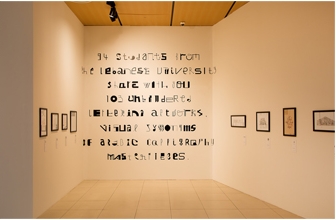 94 Students from
the Lebanese University
share with you
103 unbordered
lettering artworks,
visual synonyms
of arabic calligraphy
masterpieces.